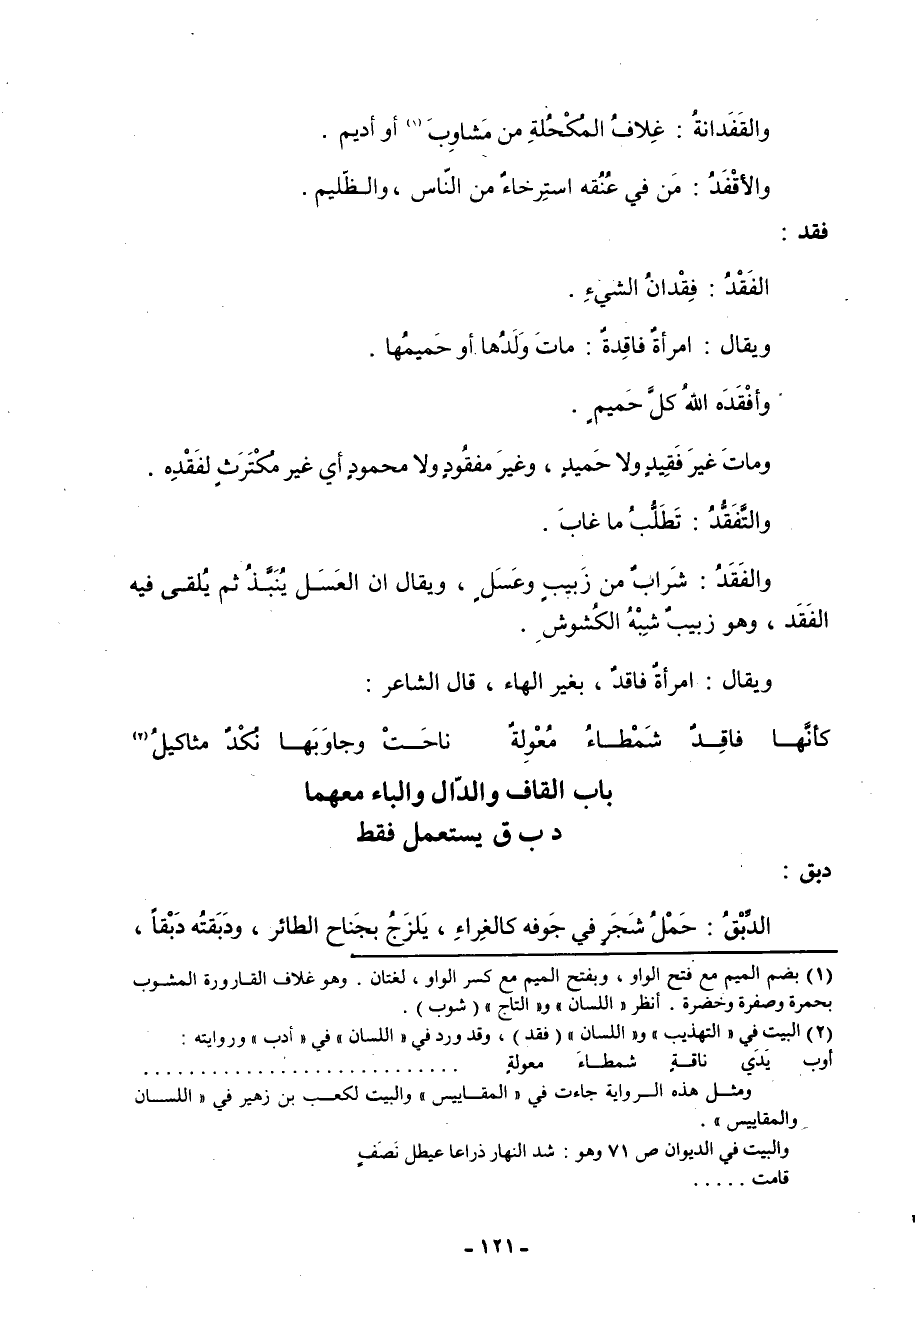 والقَفَدانةُ : غِلافُ المُكْحُلةِ من مَشاوِبَ (١) أو أديم .
والأقْفَدُ : مَن في عُنُقه استِرخاءٌ من النّاس ، والظّليم .
فقد :
الفَقْدُ : فِقْدانُ الشيءِ .
ويقال : امرأةٌ فاقِدةٌ : ماتَ وَلَدُها أو حَميمُها .
وأفْقَدَه اللهُ كلَّ حَميمٍ .
وماتَ غيرَ فَقِيدٍ ولا حَميدٍ ، وغيرَ مفقُودٍ ولا محمودٍ أي غير مكْتَرَثٍ لفَقْدِه .
والتَّفَقُّدُ : تَطَلُّبُ ما غابَ .
والفَقَدُ : شَرَابٌ من زَبيبٍ وعَسَلٍ ، ويقال ان العَسَل يُنَبَّذُ ثم يُلقى فيه
الفَقَد ، وهو زبيبٌ شِبْهُ الكُشوشِ .
ويقال : امرأةٌ فاقدٌ ، بغير الهاء ، قال الشاعر :
كأنَّها فاقِدٌ شَمْطاءُ مُعْوِلةٌ ناحَتْ وجاوَبَها نُكْدٌ مثاكيلُ (٢)
باب القاف والدّال والباء معهما
د ب ق يستعمل فقط
دبق :
الدِّبْقُ : حَمْلُ شَجَرٍ في جَوفه كالغِراءِ ، يَلزَجُ بجَناح الطائر ، ودَبَقتُه دَبْقاً ،
(١) بضم الميم مع فتح الواو ، وبفتح الميم مع كسر الواو ، لغتان . وهو غلاف القارورة المشوب
بحمرة وصفرة وخضرة . أنظر « اللسان » و« التاج » ( شوب ) .
(٢) البيت في « التهذيب » و« اللسان » ( فقد ) ، وقد ورد في « اللسان » في « أدب » وروايته :
أوب يَدَي ناقةٍ شمطاءَ معولةٍ . . . . . . . . . . . . . . . . . . . . . . . . . . . .
ومثل هذه الرواية جاءت في « المقاييس » والبيت لكعب بن زهير في « اللسان
والمقاييس » .
والبيت في الديوان ص ٧١ وهو : شد النهار ذراعا عيطل نَصَفٍ
قامت . . . . .
- ١٢١ -